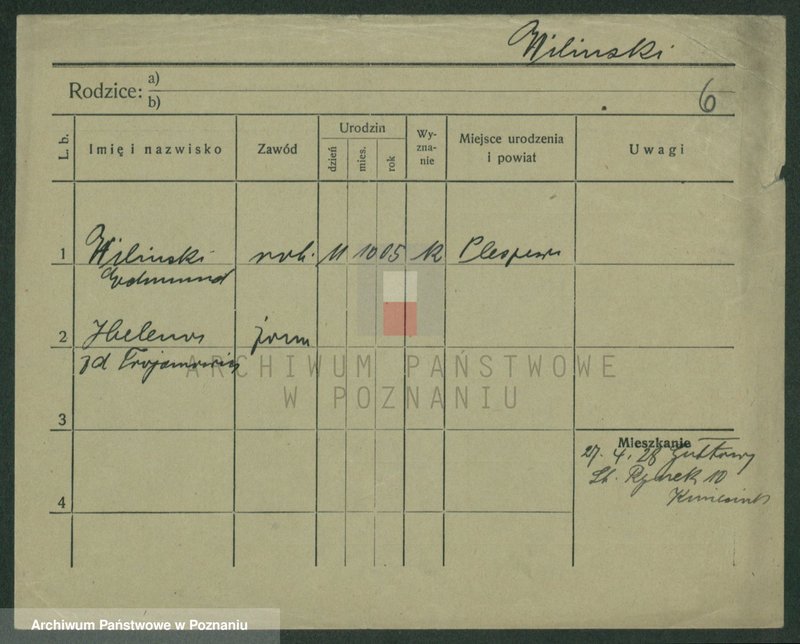 Wilinski
Rodzice: a)
b)
6
L. b. Imię i nazwisko Zawód Urodzin dzień mies. rok Wy-zna-nie Miejsce urodzenia i powiat Uwagi
1 Wilinski rob. 11 10 05 rk Pleszew
Edmund
2 Helena żona
zd Trojanowicz
ARCHIWUM PAŃSTWOWE
W POZNANIU
3
Mieszkanie
27. 4. 28
St. Rynek 10
4
Archiwum Państwowe w Poznaniu